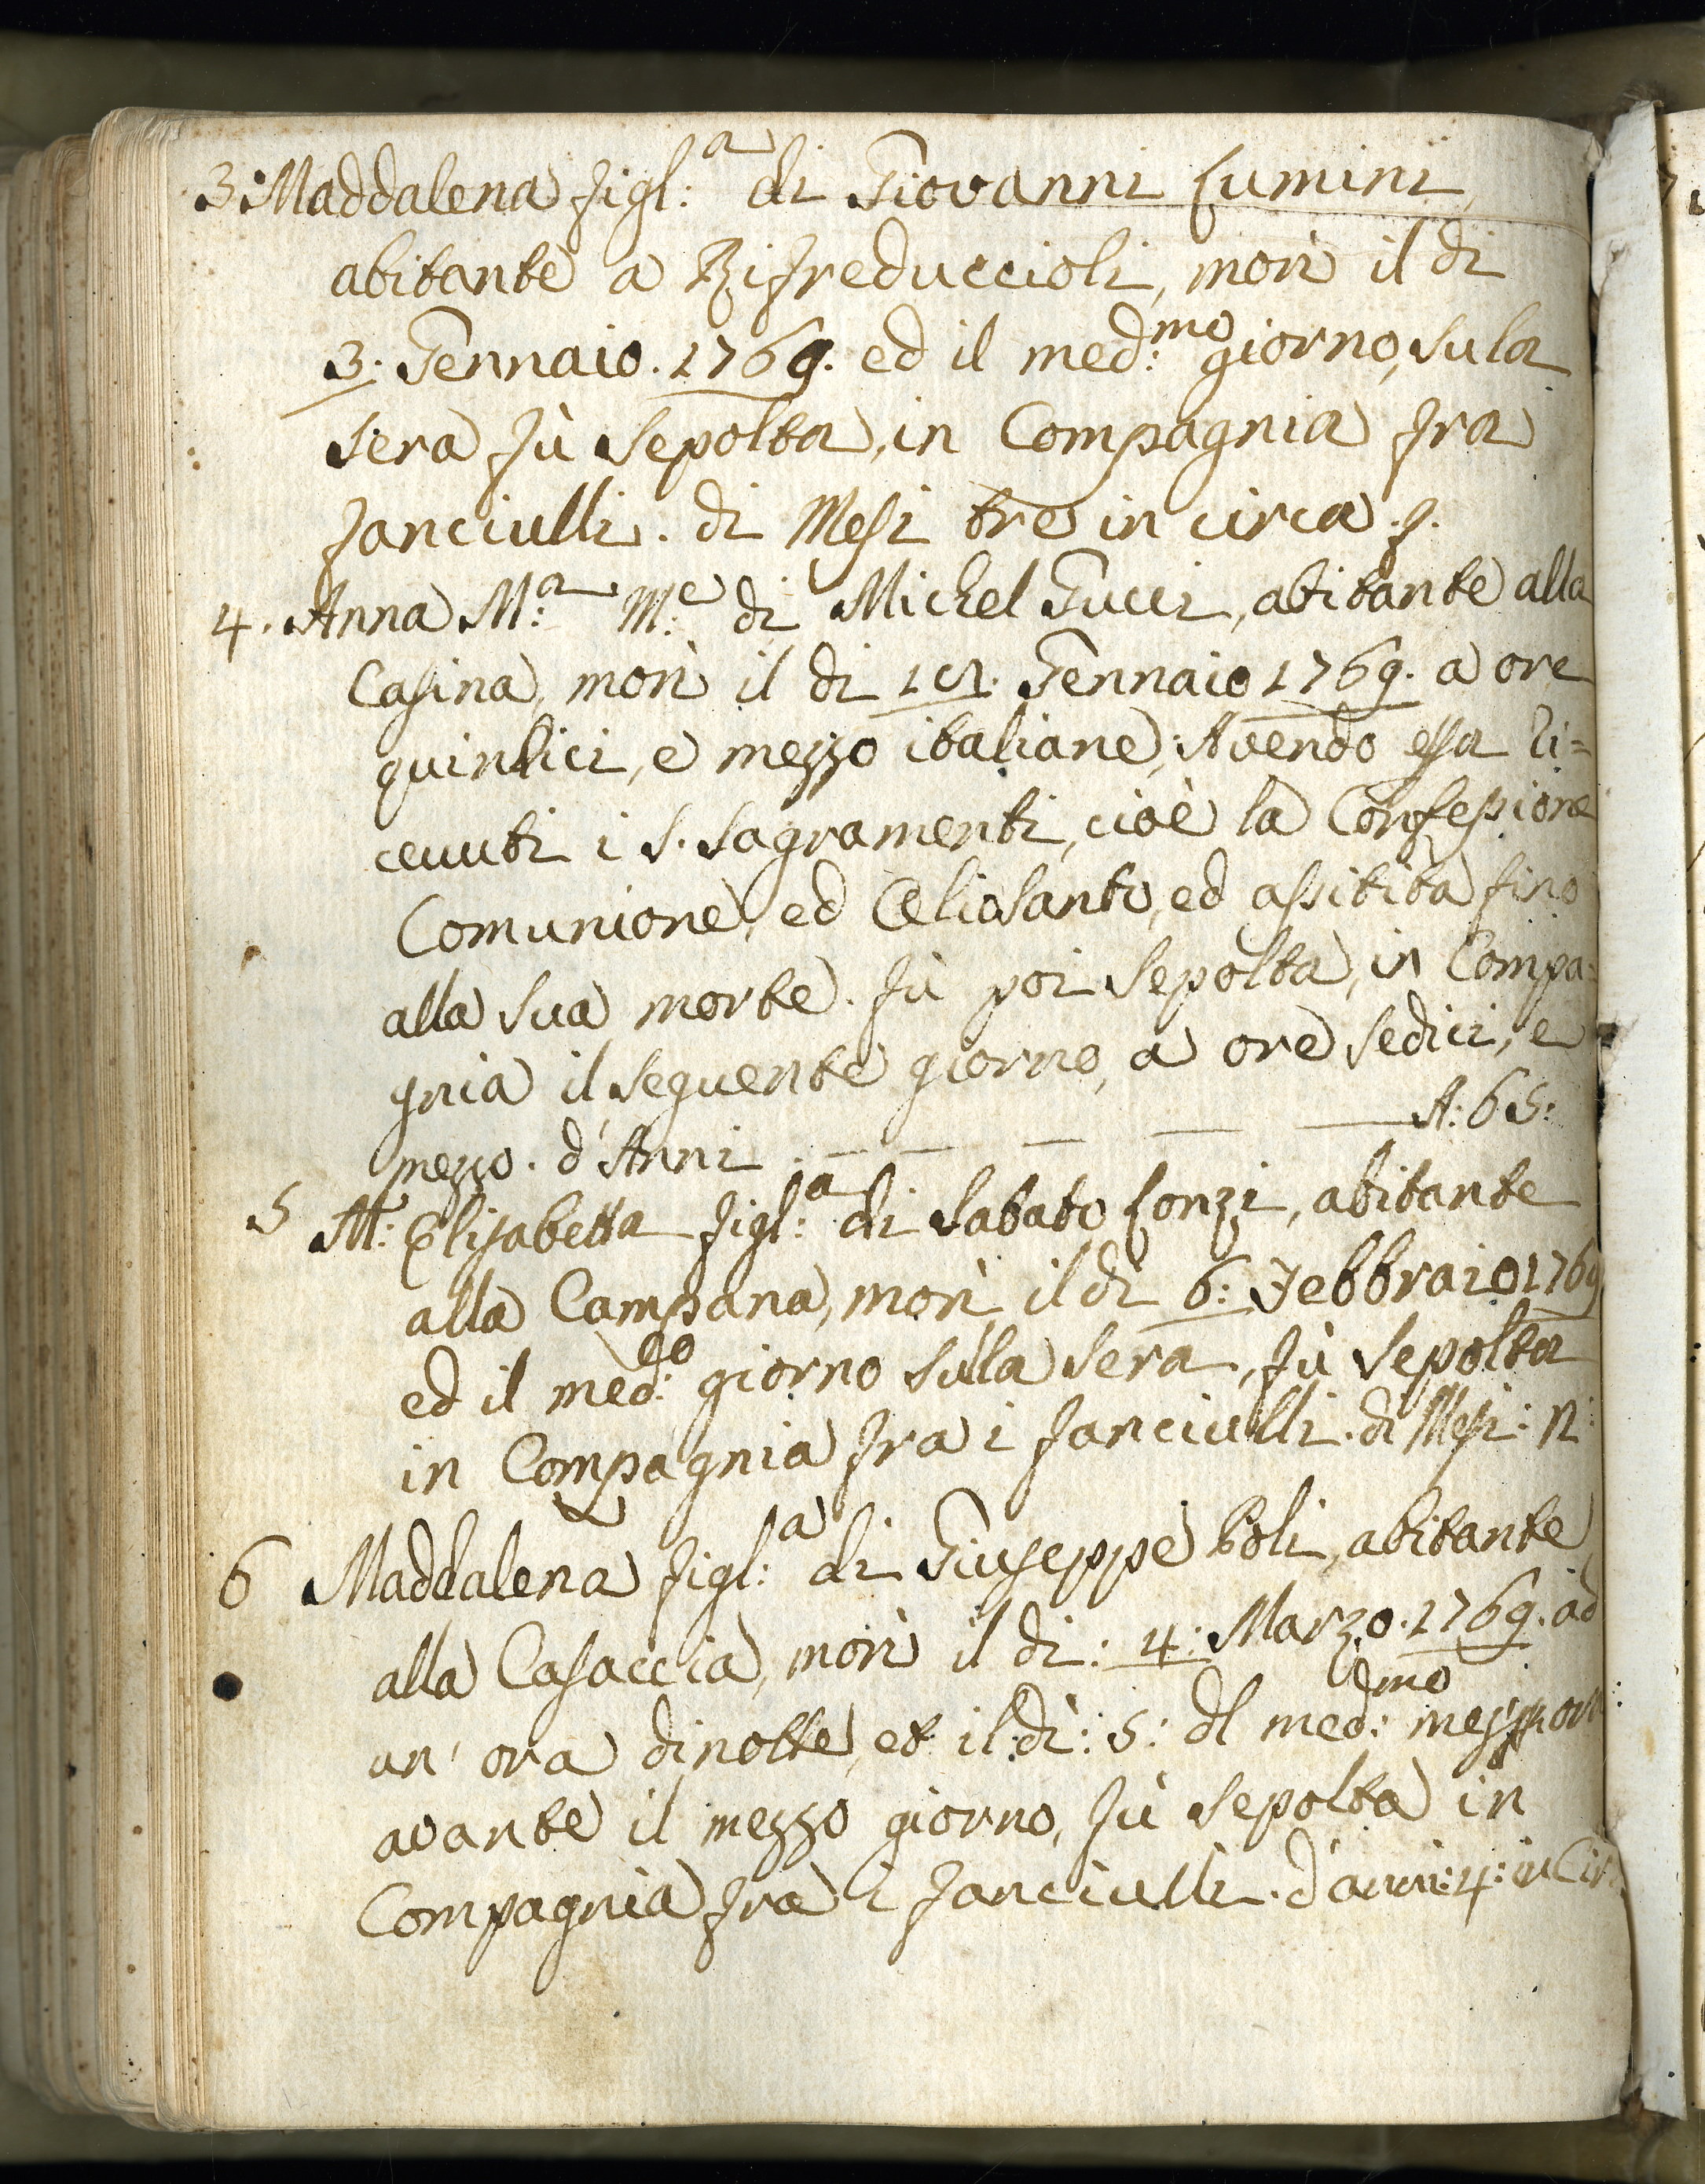 3: Maddalena figl:a di Giovanni Lumini
abitante a Rifreduccioli, morì il di
3. Gennaio. 1769. ed il med:mo giorno, su la
sera fù sepolta, in Compagnia fra
fanciulli. di Mesi tre in circa.
4. Anna M:a M:e di Michel Gucci, abitante alla
Casina, morì il di Gennaio 1769. a ore
quindici, e mezzo italiane; Avendo essa ri=
ceuuti i S. Sagramenti, cioè la Confessione
Comunione, ed Oliosanto, ed assitita fino
alla sua morte. Fù poi sepolta, in Compa:
gnia il seguente giorno, a ore sedici, e
mezzo. d'Anni — — — — A: 65:
5 M: Elisabetta figl:a di Sabato Lonzi, abitante
alla Campana, morì il di 6: Febbraio 1769
ed il med:o giorno sula sera, fù sepolta
in Compagnia fra i fanciulli. di Mesi: n:
6 Maddalena figl:a di Giuseppe Poli, abitante
alla Casaccia, morì il di: 4: Marzo. 1769. ad
un' ora dinotte, et il: dì: 5: dl med:mo mezz'or
avante il mezzo giorno, fù sepolta in
Compagnia fra i fanciulli. d'anni: 4: in Cir